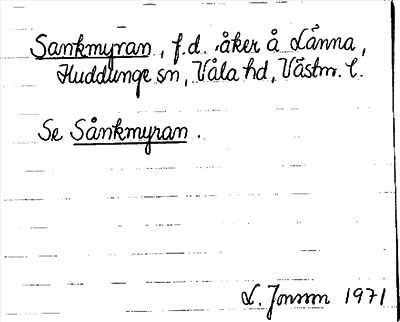 Sankmyran, f.d. åker å Länna,
Huddunge sn, Våla hd, Västm. l.
Se Sånkmyran.
L. Jonsson 1971